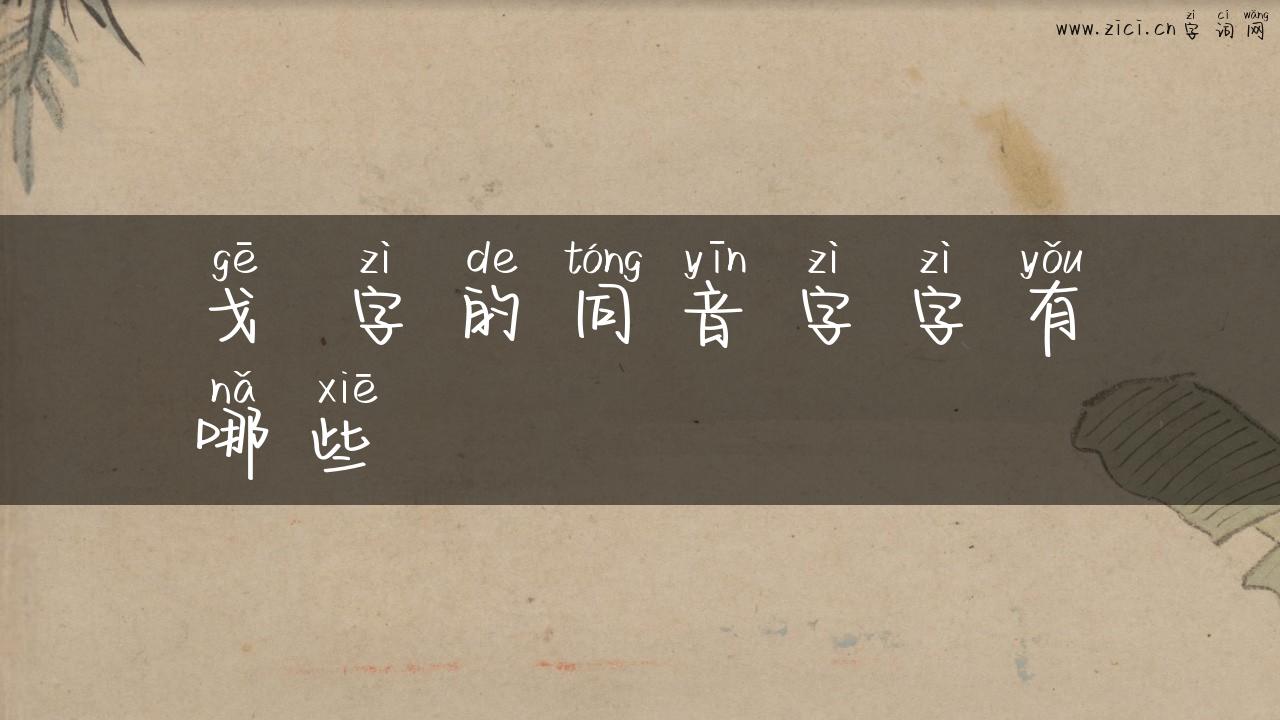 zì cí wǎng
www.zici.cn 字 词 网
gē zì de tóng yīn zì zì yǒu
戈 字 的 同 音 字 字 有
nǎ xiē
哪 些